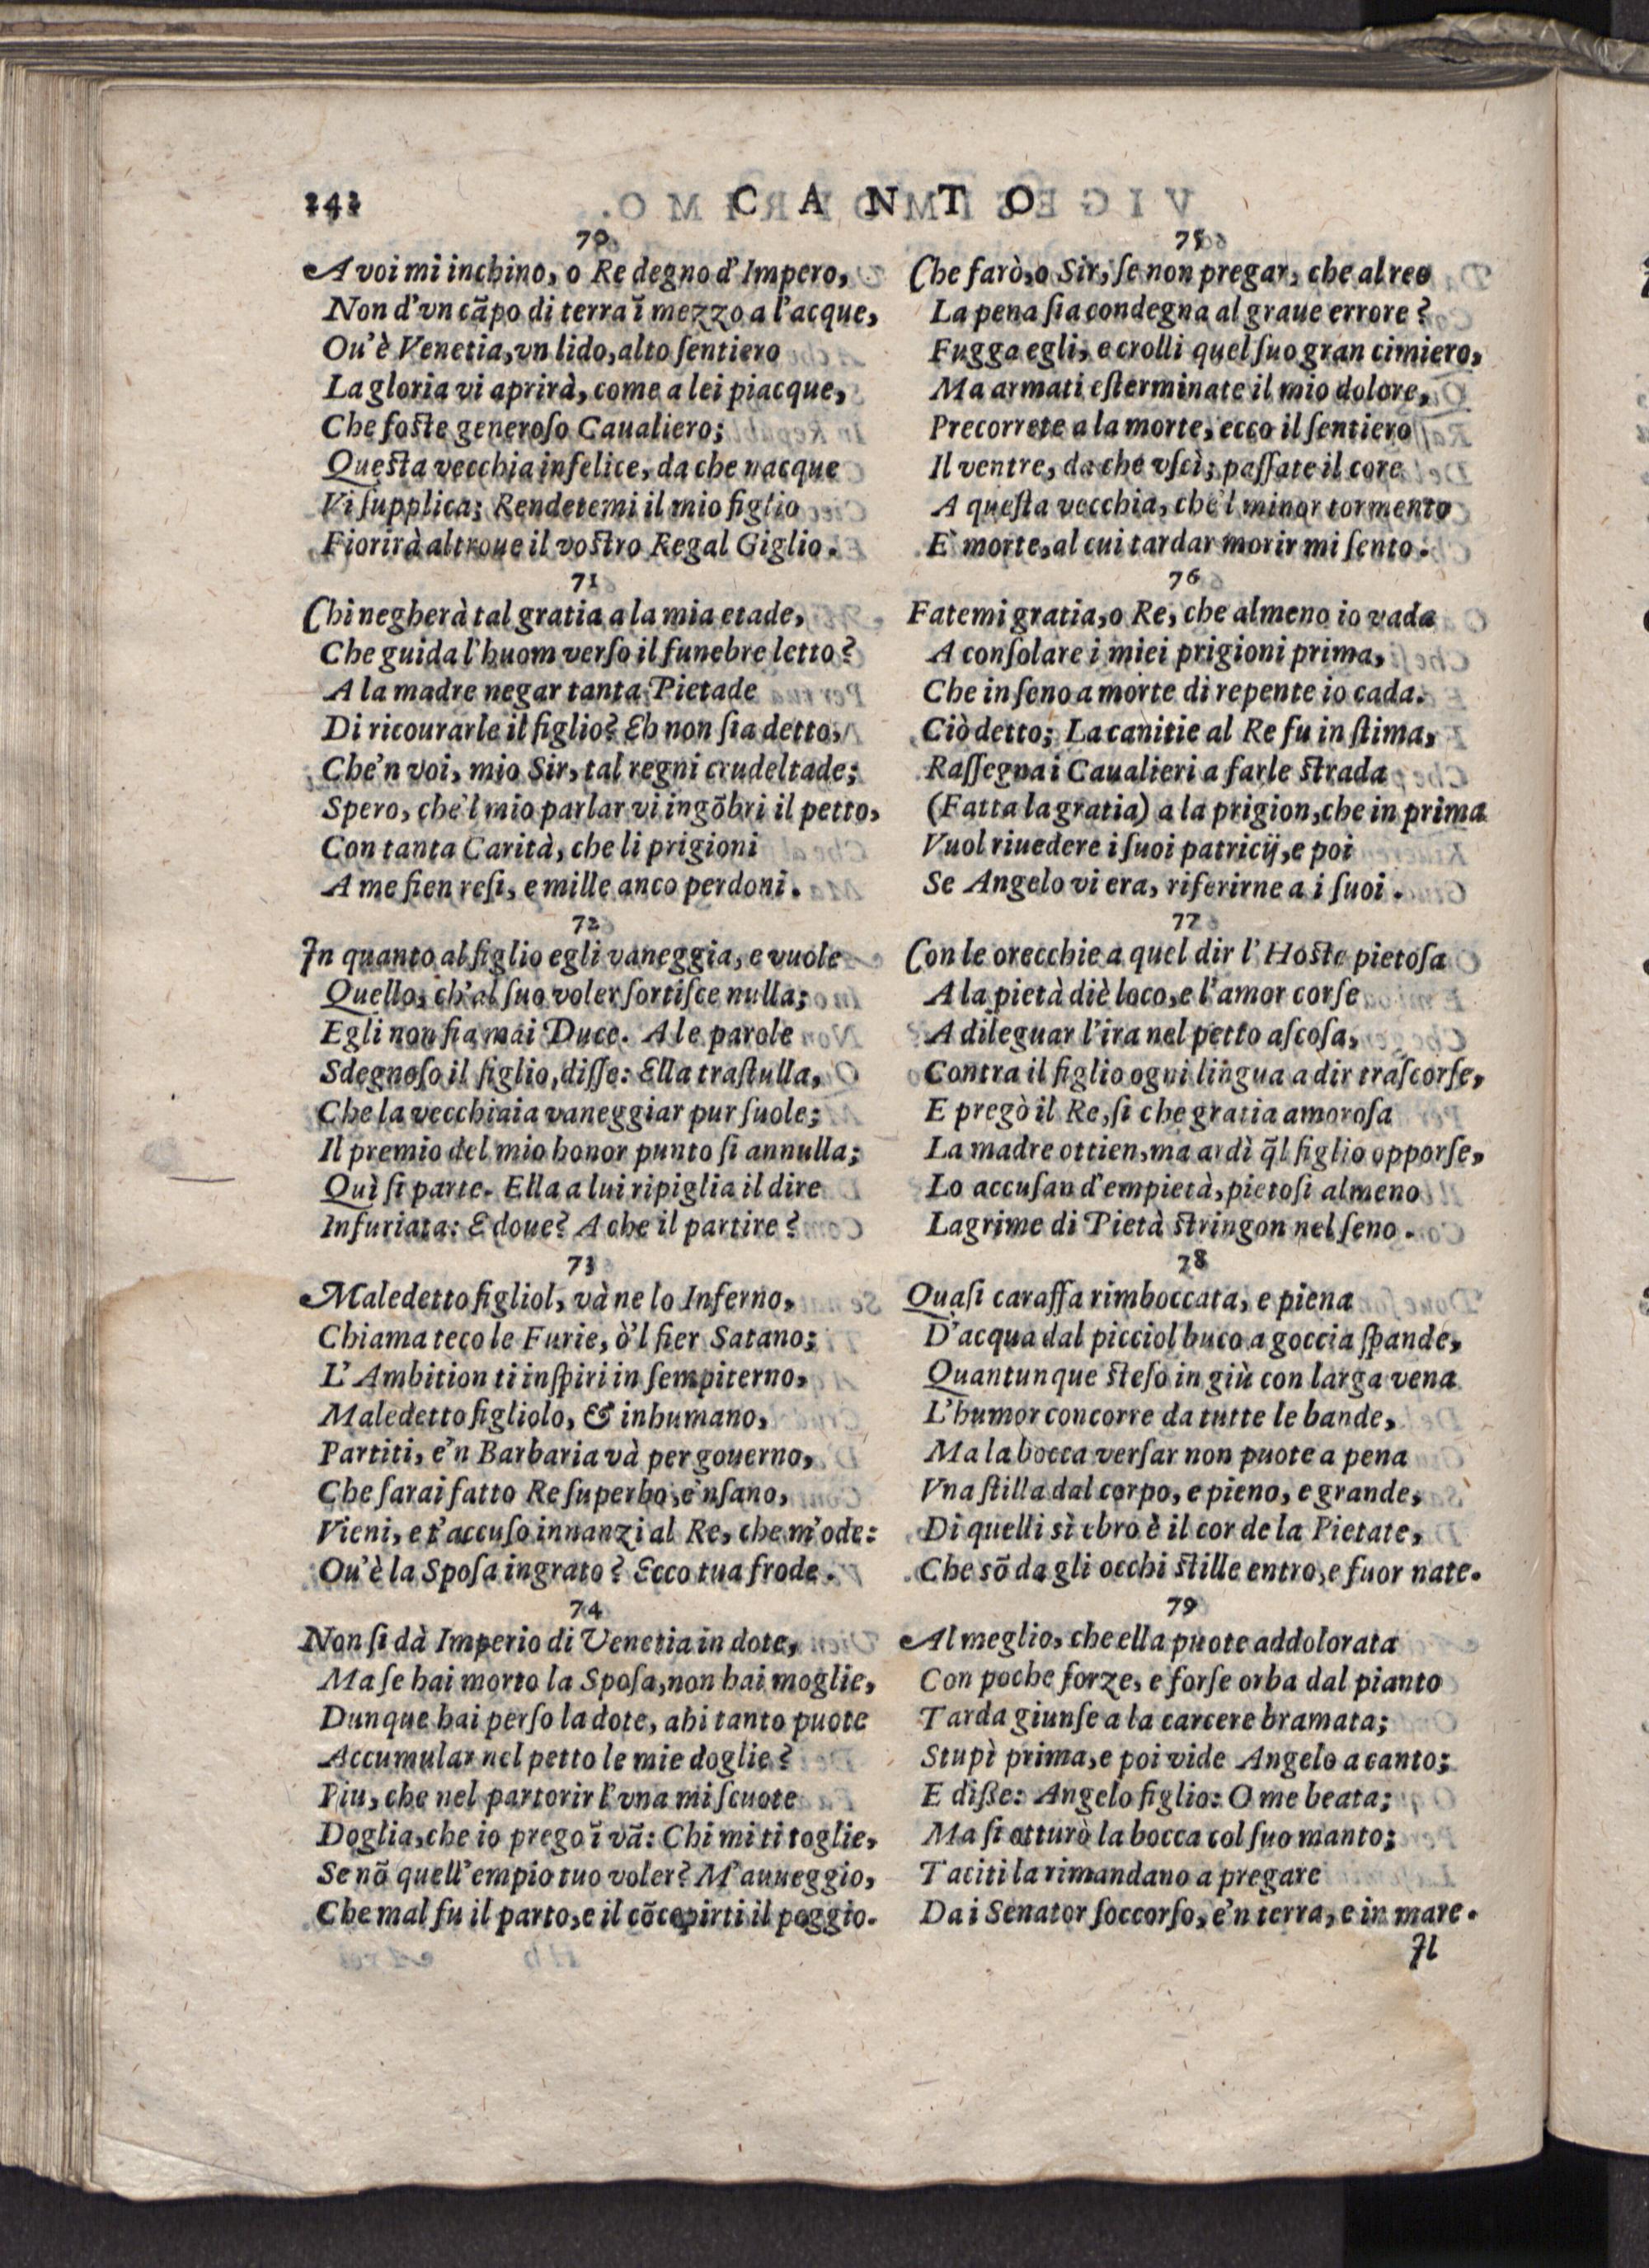 242
CANTO
70
A voi mi inchino, o Re degno d'Impero,
Non d'vn cãpo di terra ĩ mezzo a l'acque,
Ou'è Venetia, vn lido, alto ſentiero
La gloria vi aprirà, come a lei piacque,
Che foſte generoſo Caualiero;
Queſta vecchia infelice, da che nacque
Vi ſupplica; Rendetemi il mio figlio
Fiorirà altroue il voſtro Regal Giglio.
71
Chi negherà tal gratia a la mia etade,
Che guida l'huom verſo il funebre letto?
A la madre negar tanta Pietade
Di ricourarle il figlio? Eh non ſia detto,
Che'n voi, mio Sir, tal regni crudeltade;
Spero, che'l mio parlar vi ingõbri il petto,
Con tanta Carità, che li prigioni
A me ſien reſi, e mille anco perdoni.
72
In quanto al figlio egli vaneggia, e vuole
Quello, ch'al ſuo voler ſortiſce nulla;
Egli non fia mai Duce. A le parole
Sdegnoſo il figlio, diſſe: Ella traſtulla,
Che la vecchiaia vaneggiar pur ſuole;
Il premio del mio honor punto ſi annulla;
Quì ſi parte. Ella a lui ripiglia il dire
Infuriata: E doue? A che il partire?
73
Maledetto figliol, và ne lo Inferno,
Chiama teco le Furie, ò'l fier Satano;
L'Ambition ti inſpiri in ſempiterno,
Maledetto figliolo, & inhumano,
Partiti, e'n Barbaria và per gouerno,
Che ſarai fatto Re ſuperbo, e'nſano,
Vieni, e t'accuſo innanzi al Re, che m'ode:
Ou'è la Spoſa ingrato? Ecco tua frode.
74
Non ſi dà Imperio di Venetia in dote,
Ma ſe hai morto la Spoſa, non hai moglie,
Dunque hai perſo la dote, ahi tanto puote
Accumular nel petto le mie doglie?
Piu, che nel partorir l'vna mi ſcuote
Doglia, che io prego ĩ vã: Chi mi ti toglie,
Se nõ quell'empio tuo voler? M'auueggio,
Che mal fu il parto, e il cõcepirti il peggio.
75
Che farò, o Sir, ſe non pregar, che al reo
La pena ſia condegna al graue errore?
Fugga egli, e crolli quel ſuo gran cimiero,
Ma armati eſterminate il mio dolore,
Precorrete a la morte, ecco il ſentiero
Il ventre, da che vſcì; paſſate il core
A queſta vecchia, che'l minor tormento
E' morte, al cui tardar morir mi ſento.
76
Fatemi gratia, o Re, che almeno io vada
A conſolare i miei prigioni prima,
Che in ſeno a morte di repente io cada.
Ciò detto; La canitie al Re fu in ſtima,
Raſſegna i Caualieri a farle ſtrada
(Fatta la gratia) a la prigion, che in prima
Vuol riuedere i ſuoi patricij, e poi
Se Angelo vi era, riferirne a i ſuoi.
77
Con le orecchie a quel dir l'Hoſte pietoſa
A la pietà diè loco, e l'amor corſe
A dileguar l'ira nel petto aſcoſa,
Contra il figlio ogni lingua a dir traſcorſe,
E pregò il Re, ſi che gratia amoroſa
La madre ottien, ma ardì q̃l figlio opporſe,
Lo accuſan d'empietà, pietoſi almeno
Lagrime di Pietà ſtringon nel ſeno.
78
Quaſi caraffa rimboccata, e piena
D'acqua dal picciol buco a goccia ſpande,
Quantunque ſteſo in giù con larga vena
L'humor concorre da tutte le bande,
Ma la bocca verſar non puote a pena
Vna ſtilla dal corpo, e pieno, e grande,
Di quelli sì ebro è il cor de la Pietate,
Che sõ da gli occhi ſtille entro, e fuor nate.
79
Al meglio, che ella puote addolorata
Con poche forze, e forſe orba dal pianto
Tarda giunſe a la carcere bramata;
Stupì prima, e poi vide Angelo a canto;
E diſſe: Angelo figlio: O me beata;
Ma ſi otturò la bocca col ſuo manto;
Taciti la rimandano a pregare
Da i Senator ſoccorſo, e'n terra, e in mare.
Il